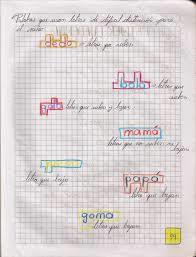 Palabras que usan letras de difícil distinción para
el niño.
dedo letras que suben
bobo letras que suben
gato letras que suben y bajan
mamá
letras que no suben ni
bajan
letras que bajan
papá
letras que bajan
goma
letras que bajan